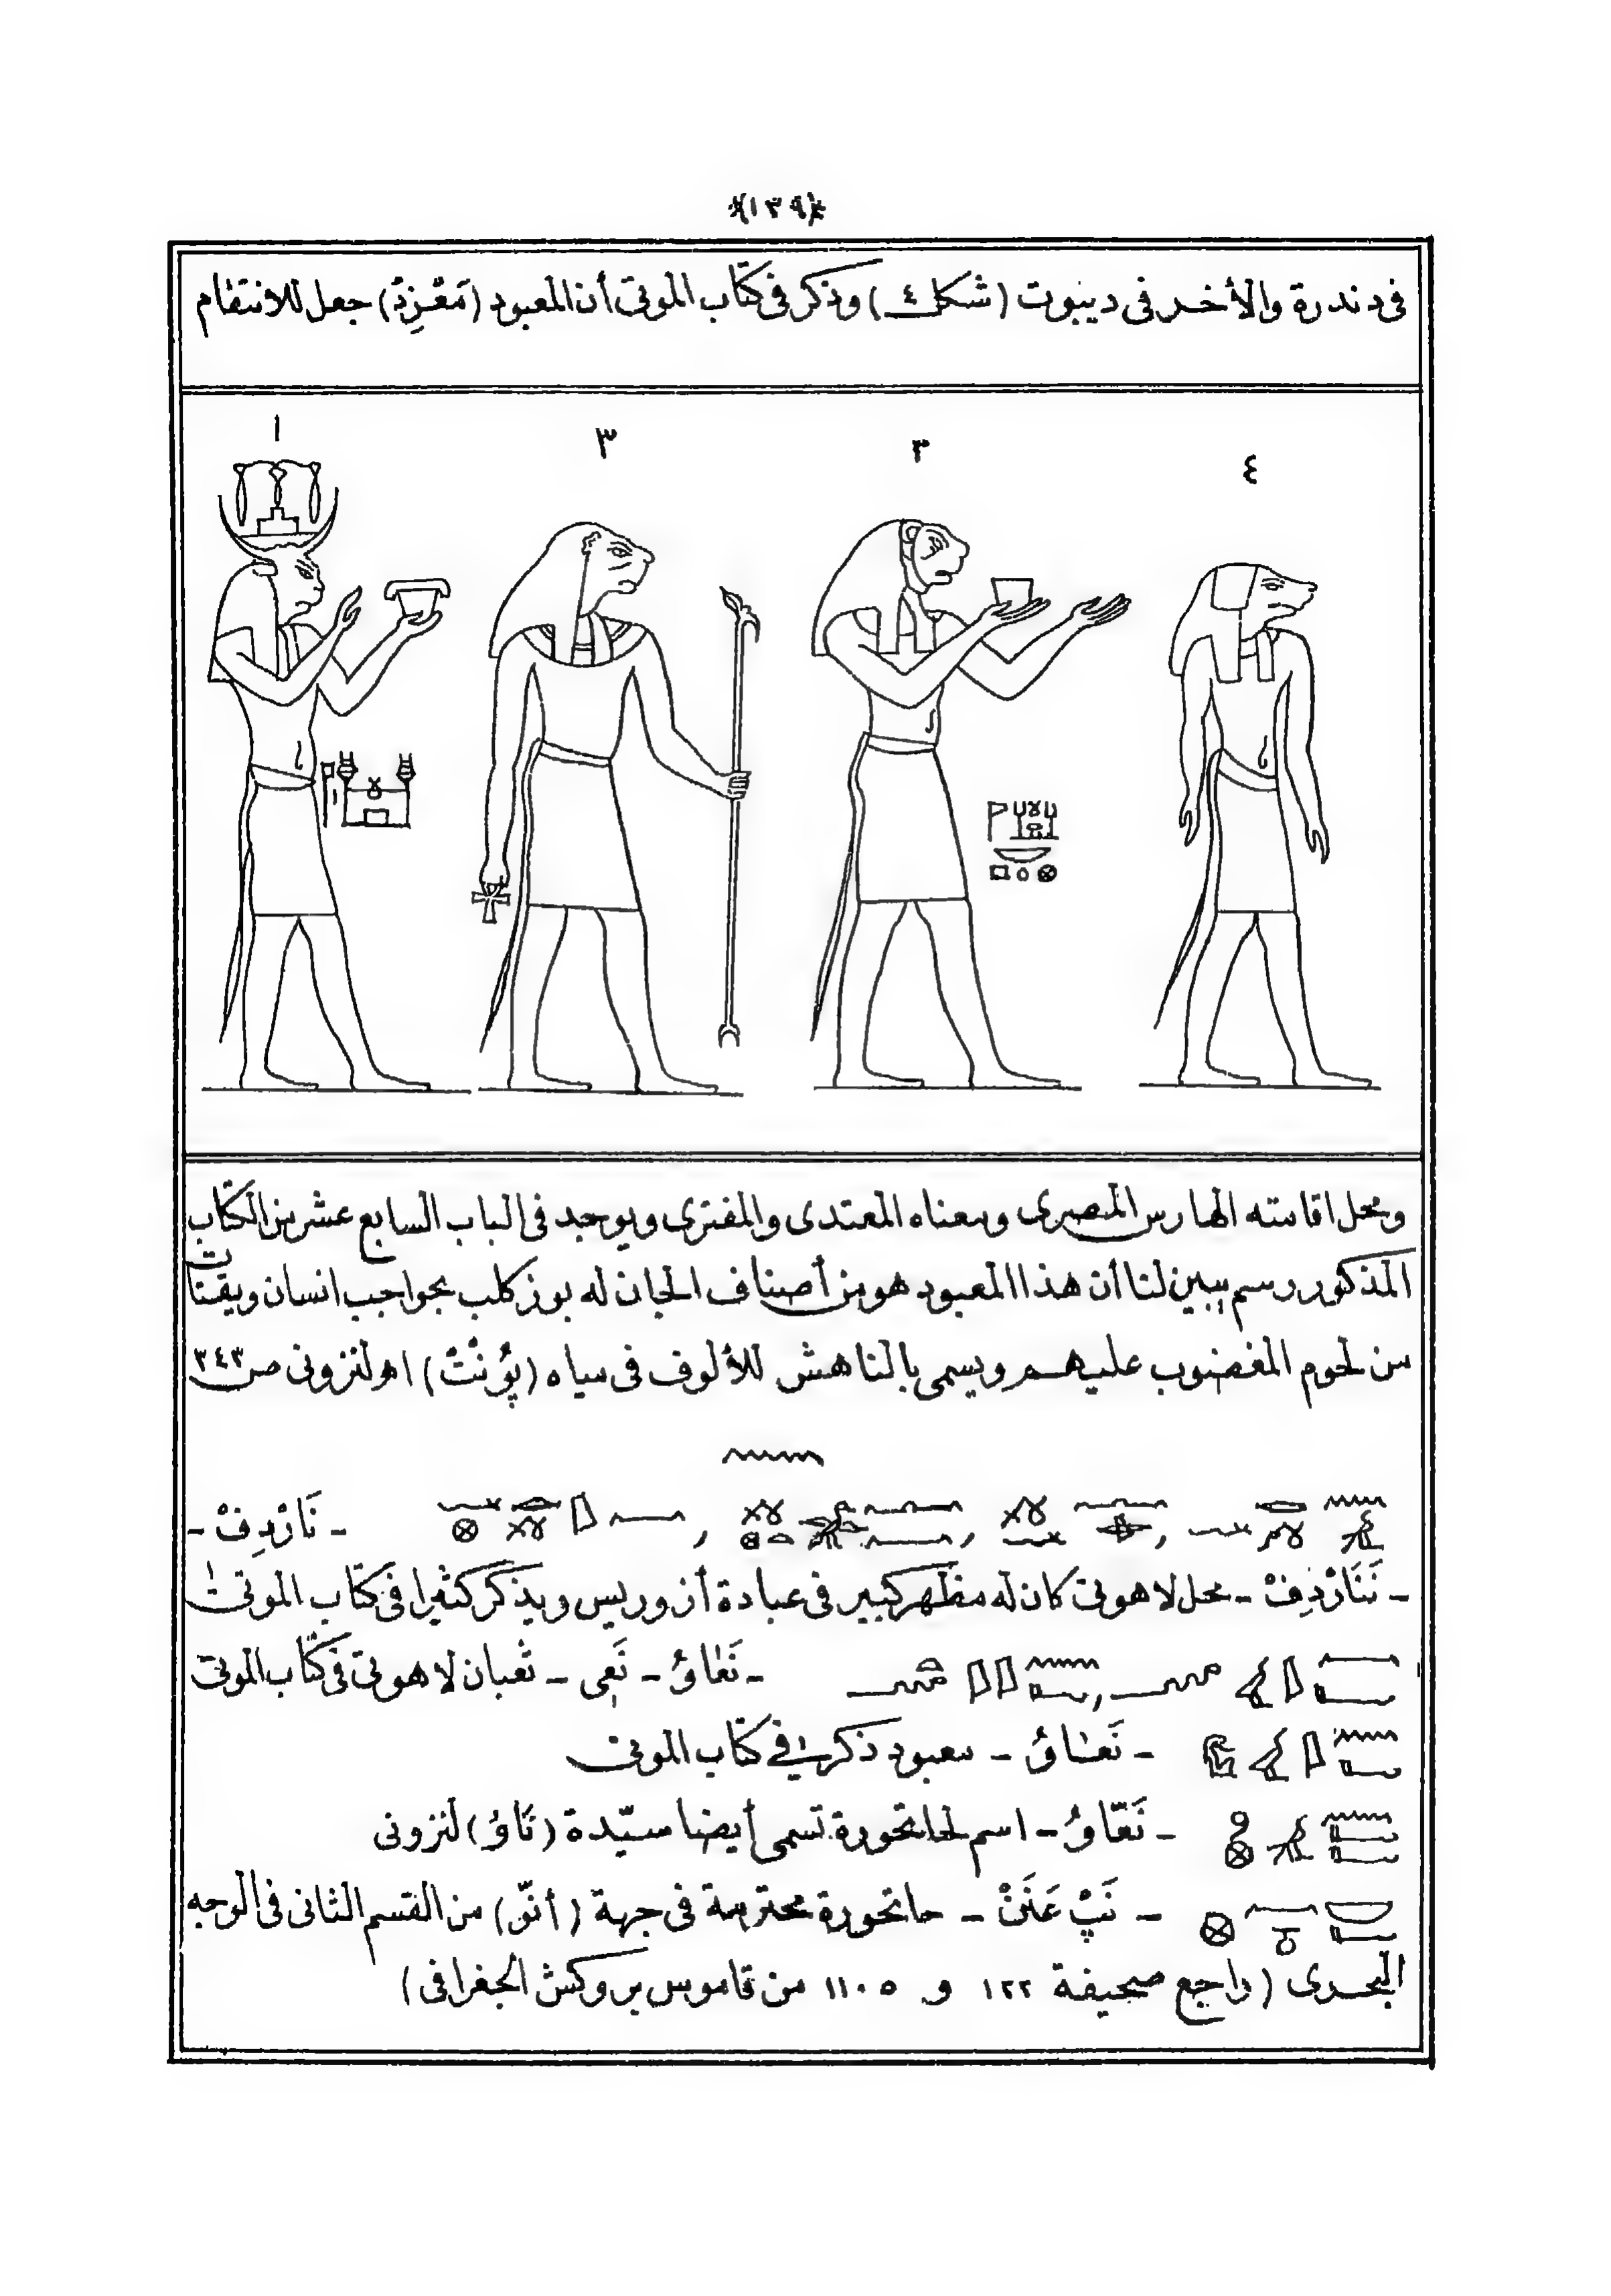 ﴿١٣٩﴾
فى دندرة والأخر فى ديبوت (شكل ٤) وذكر فى كتاب الموتى أن المعبود (مَعْزِدْ) جعل للانتقام
١ ٣ ٣ ٤
ومحل اقامته الهارس المصرى ومعناه المعتدى والمفترى ويوجد فى الباب السابع عشر من الكتاب
المذكور رسم يبين لنا أن هذا المعبود هو من أصناف الجان له بوز كلب بحواجب انسان ويقتات
من لحوم المغضوب عليهم ويسمى بالناهش للألوف فى مياه (پُونْتْ) اهـ لنزونى ص ٣٤٣
- نَارْدِفْ -
- نَنَارْدِفْ - محل لاهوتى كان له مظهر كبير فى عبادة أزوريس ويذكر كثيرا فى كتاب الموتى
- نَعَاوُ - نَعِى - ثعبان لاهوتى فى كتاب الموتى
- نَعَاوُ - معبود ذكر فى كتاب الموتى
- نَعَّاوُ - اسم لحاتحورة تسمى أيضا سيّدة (نَاوُ) لنزونى
- نَپْ عَنَنْ - حاتحورة محترمة فى جهة (أنوّ) من القسم الثانى فى الوجه
البحرى (راجع صحيفة ١٢٢ و ١١٠٥ من قاموس بروكش الجغرافى)